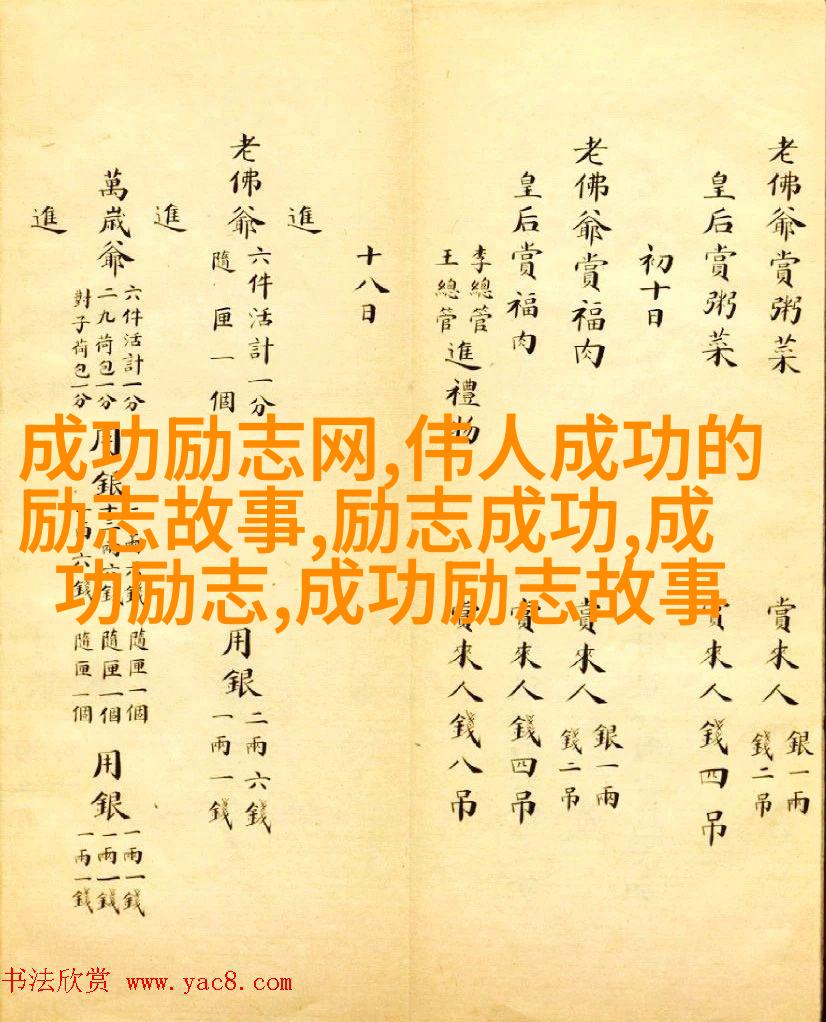 老佛爺賞粥菜 賞來人 銀一兩 錢二吊
皇后賞粥菜 賞來人錢四吊
初十日
老佛爺賞福肉 賞來人 銀一兩 錢二吊
皇后賞福肉 賞來人錢四吊
李總管 王總管 進禮物 賞來人錢八吊
十八日
進
老佛爺 六件活計一分 隨匣一個 用銀 二兩六錢 一兩一錢
進
萬歲爺 六件活計一分 二九荷包一分 對子荷包一分 用銀 隨匣一個 隨匣一個 隨匣一個 用銀 一兩一錢 一兩一錢 一兩一錢
進
成功励志网,伟人成功的
励志故事,励志成功,成
功励志,成功励志故事
书法欣赏 www.yac8.com